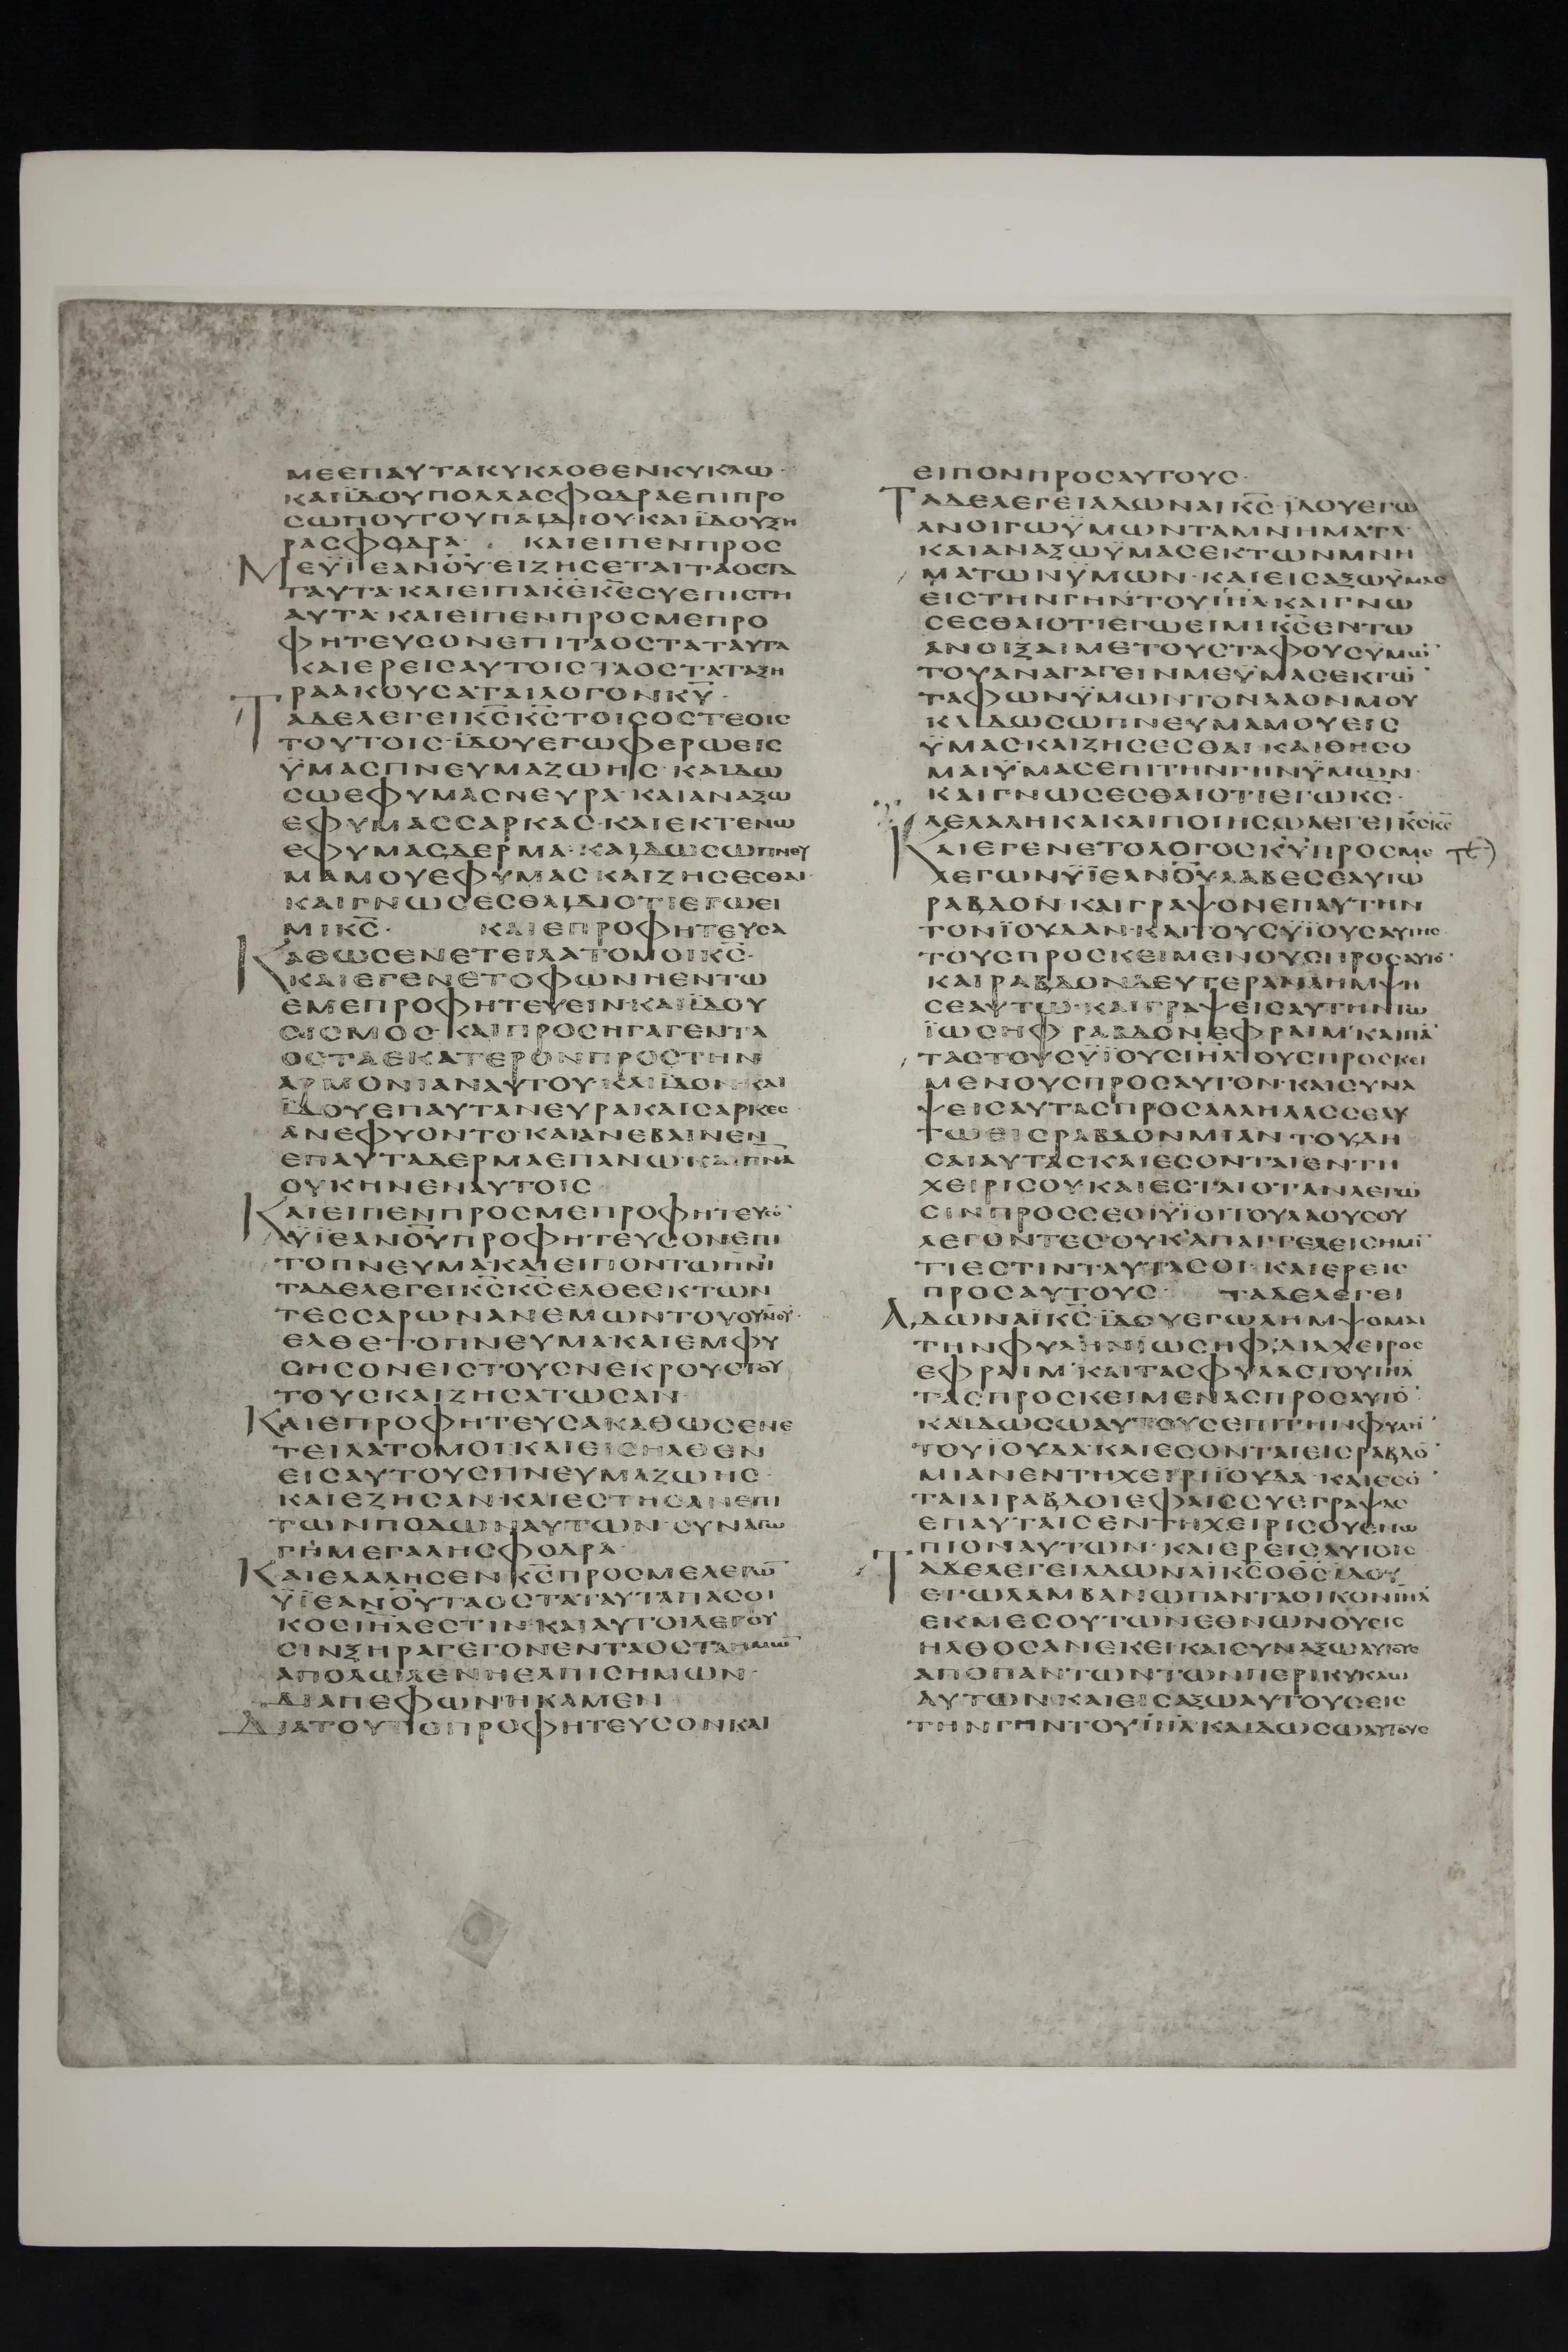 ΜΕΕΠΑΥΤΑΚΥΚΛΟΘΕΝΚΥΚΛΩ·
ΚΑΙΪΔΟΥΠΟΛΛΑΣΦΟΔΡΑΕΠΙΠΡΟ
ΣΩΠΟΥΤΟΥΠΑΙΔΙΟΥ·ΚΑΙΪΔΟΥΞΗ
ΡΑΣΦΟΔΡΑ· ΚΑΙΕΙΠΕΝΠΡΟΣ
ΜΕΫΪΕΑΝΟΥ̅·ΕΙΖΗΣΕΤΑΙΤΑΟΣΤΑ
ΤΑΥΤΑ·ΚΑΙΕΙΠΑΚΕ̅ΚΕ̅ΣΥΕΠΙΣΤΗ
ΑΥΤΑ·ΚΑΙΕΙΠΕΝΠΡΟΣΜΕΠΡΟ
ΦΗΤΕΥΣΟΝΕΠΙΤΑΟΣΤΑΤΑΥΤΑ
ΚΑΙΕΡΕΙΣΑΥΤΟΙΣΤΑΟΣΤΑΤΑΞΗ
ΡΑΑΚΟΥΣΑΤΑΙΛΟΓΟΝΚΥ̅·
ΤΑΔΕΛΕΓΕΙΚΣ̅ΚΣ̅ΤΟΙΣΟΣΤΕΟΙΣ
ΤΟΥΤΟΙΣ·ΪΔΟΥΕΓΩΦΕΡΩΕΙΣ
ΫΜΑΣΠΝΕΥΜΑΖΩΗΣ·ΚΑΙΔΩ
ΣΩΕΦΥΜΑΣΝΕΥΡΑ·ΚΑΙΑΝΑΞΩ
ΕΦΥΜΑΣΣΑΡΚΑΣ·ΚΑΙΕΚΤΕΝΩ
ΕΦΥΜΑΣΔΕΡΜΑ·ΚΑΙΔΩΣΩΠΝΕΥ
ΜΑΜΟΥΕΦΥΜΑΣΚΑΙΖΗΣΕΣΘΑΙ·
ΚΑΙΓΝΩΣΕΣΘΑΙΔΙΟΤΙΕΓΩΕΙ
ΜΙΚΣ̅· ΚΑΙΕΠΡΟΦΗΤΕΥΣΑ
ΚΑΘΩΣΕΝΕΤΕΙΛΑΤΟΜΟΙΚΣ̅·
ΚΑΙΕΓΕΝΕΤΟΦΩΝΗΕΝΤΩ
ΕΜΕΠΡΟΦΗΤΕΥΕΙΝ·ΚΑΙΪΔΟΥ
ΣΙΣΜΟΣ·ΚΑΙΠΡΟΣΗΓΑΓΕΝΤΑ
ΟΣΤΑΕΚΑΤΕΡΟΝΠΡΟΣΤΗΝ
ΑΡΜΟΝΙΑΝΑΥΤΟΥ·ΚΑΙΪΔΟΝ·ΚΑΙ
ΪΔΟΥΕΠΑΥΤΑΝΕΥΡΑΚΑΙΣΑΡΚΕΣ
ΑΝΕΦΥΟΝΤΟ·ΚΑΙΑΝΕΒΑΙΝΕΝ
ΕΠΑΥΤΑΔΕΡΜΑΕΠΑΝΩ·ΚΑΙΠΝΑ̅
ΟΥΚΗΝΕΝΑΥΤΟΙΣ
ΚΑΙΕΙΠΕΝΠΡΟΣΜΕΠΡΟΦΗΤΕΥΣΟ̅
ΫΪΕΑΝΟΥ̅ΠΡΟΦΗΤΕΥΣΟΝΕΠΙ
ΤΟΠΝΕΥΜΑ·ΚΑΙΕΙΠΟΝΤΩΠΝΙ̅
ΤΑΔΕΛΕΓΕΙΚΣ̅ΚΣ̅ΕΛΘΕΕΚΤΩΝ
ΤΕΣΣΑΡΩΝΑΝΕΜΩΝΤΟΥΟΥΝΟΥ̅·
ΕΛΘΕΤΟΠΝΕΥΜΑ·ΚΑΙΕΜΦΥ
ΣΗΣΟΝΕΙΣΤΟΥΣΝΕΚΡΟΥΣΤΟΥ
ΤΟΥΣΚΑΙΖΗΣΑΤΩΣΑΝ·
ΚΑΙΕΠΡΟΦΗΤΕΥΣΑΚΑΘΩΣΕΝΕ
ΤΕΙΛΑΤΟΜΟΙ·ΚΑΙΕΙΣΗΛΘΕΝ
ΕΙΣΑΥΤΟΥΣΠΝΕΥΜΑΖΩΗΣ·
ΚΑΙΕΖΗΣΑΝ·ΚΑΙΕΣΤΗΣΑΝΕΠΙ
ΤΩΝΠΟΔΩΝΑΥΤΩΝ·ΣΥΝΑΓΩ
ΓΗΜΕΓΑΛΗΣΦΟΔΡΑ·
ΚΑΙΕΛΑΛΗΣΕΝΚΣ̅ΠΡΟΣΜΕΛΕΓΩ̅
ΫΪΕΑΝΟΥ̅ΤΑΟΣΤΑΤΑΥΤΑΠΑΣΟΙ
ΚΟΣΙΗΛ̅ΕΣΤΙΝ·ΚΑΙΑΥΤΟΙΛΕΓΟΥ
ΣΙΝΞΗΡΑΓΕΓΟΝΕΝΤΑΟΣΤΑΗΜΩ̅
ΑΠΟΛΩΛΕΝΗΕΛΠΙΣΗΜΩΝ·
ΔΙΑΠΕΦΩΝΗΚΑΜΕΝ
ΔΙΑΤΟΥΤΟΠΡΟΦΗΤΕΥΣΟΝΚΑΙ
ΕΙΠΟΝΠΡΟΣΑΥΤΟΥΣ·
ΤΑΔΕΛΕΓΕΙΑΔΩΝΑΙΚΣ̅·ΪΔΟΥΕΓΩ
ΑΝΟΙΓΩΫΜΩΝΤΑΜΝΗΜΑΤΑ·
ΚΑΙΑΝΑΞΩΫΜΑΣΕΚΤΩΝΜΝΗ
ΜΑΤΩΝΫΜΩΝ·ΚΑΙΕΙΣΑΞΩΫΜΑΣ
ΕΙΣΤΗΝΓΗΝΤΟΥΙΗΛ̅·ΚΑΙΓΝΩ
ΣΕΣΘΑΙΟΤΙΕΓΩΕΙΜΙΚΣ̅ΕΝΤΩ
ΑΝΟΙΞΑΙΜΕΤΟΥΣΤΑΦΟΥΣΥΜΩ̅·
ΤΟΥΑΝΑΓΑΓΕΙΝΜΕΫΜΑΣΕΚΤΩ̅
ΤΑΦΩΝΫΜΩΝΤΟΝΛΑΟΝΜΟΥ
ΚΑΙΔΩΣΩΠΝΕΥΜΑΜΟΥΕΙΣ
ΫΜΑΣΚΑΙΖΗΣΕΣΘΑΙ·ΚΑΙΘΗΣΟ
ΜΑΙΫΜΑΣΕΠΙΤΗΝΓΗΝΫΜΩΝ·
ΚΑΙΓΝΩΣΕΣΘΑΙΟΤΙΕΓΩΚΣ̅·
ΛΕΛΑΛΗΚΑΚΑΙΠΟΙΗΣΩΛΕΓΕΙΚΣ̅ΚΣ̅
ΚΑΙΕΓΕΝΕΤΟΛΟΓΟΣΚΥ̅ΠΡΟΣΜΕ
ΛΕΓΩΝΫΪΕΑΝΟΥ̅ΛΑΒΕΣΕΑΥΤΩ
ΡΑΒΔΟΝ·ΚΑΙΓΡΑΨΟΝΕΠΑΥΤΗΝ
ΤΟΝΪΟΥΔΑΝ·ΚΑΙΤΟΥΣΥΪΟΥΣΑΥΤΗΣ
ΤΟΥΣΠΡΟΣΚΕΙΜΕΝΟΥΣΠΡΟΣΑΥΤΟ̅·
ΚΑΙΡΑΒΔΟΝΔΕΥΤΕΡΑΝΛΗΜΨΗ
ΣΕΑΥΤΩ·ΚΑΙΓΡΑΨΕΙΣΑΥΤΗΝΤΩ
ΪΩΣΗΦ·ΡΑΒΔΟΝΕΦΡΑΙΜ·ΚΑΙΠΑ̅
ΤΑΣΤΟΥΣΥΪΟΥΣΙΗΛ̅ΤΟΥΣΠΡΟΣΚΕΙ
ΜΕΝΟΥΣΠΡΟΣΑΥΤΟΝ·ΚΑΙΣΥΝΑ
ΨΕΙΣΑΥΤΑΣΠΡΟΣΑΛΛΗΛΑΣΣΕΑΥ
ΤΩΕΙΣΡΑΒΔΟΝΜΙΑΝ·ΤΟΥΔΗ
ΣΑΙΑΥΤΑΣ·ΚΑΙΕΣΟΝΤΑΙΕΝΤΗ
ΧΕΙΡΙΣΟΥ·ΚΑΙΕΣΤΑΙΟΤΑΝΛΕΓΩ
ΣΙΝΠΡΟΣΣΕΟΙΫΪΟΙΤΟΥΛΑΟΥΣΟΥ
ΛΕΓΟΝΤΕΣΟΥΚΑΠΑΓΓΕΛΕΙΣΗΜΙ̅
ΤΙΕΣΤΙΝΤΑΥΤΑΣΟΙ·ΚΑΙΕΡΕΙΣ
ΠΡΟΣΑΥΤΟΥΣ· ΤΑΔΕΛΕΓΕΙ
ΑΔΩΝΑΪΚΣ̅·ΪΔΟΥΕΓΩΛΗΜΨΟΜΑΙ
ΤΗΝΦΥΛΗΝΪΩΣΗΦ·ΔΙΑΧΕΙΡΟΣ
ΕΦΡΑΙΜ·ΚΑΙΤΑΣΦΥΛΑΣΤΟΥΙΗΛ̅
ΤΑΣΠΡΟΣΚΕΙΜΕΝΑΣΠΡΟΣΑΥΤΟ̅·
ΚΑΙΔΩΣΩΑΥΤΟΥΣΕΠΙΤΗΝΦΥΛΗ̅
ΤΟΥΪΟΥΔΑ·ΚΑΙΕΣΟΝΤΑΙΕΙΣΡΑΒΔΟ̅
ΜΙΑΝΕΝΤΗΧΕΙΡΙΪΟΥΔΑ·ΚΑΙΕΣΟ̅
ΤΑΙΑΙΡΑΒΔΟΙΕΦΑΙΣΣΥΕΓΡΑΨΑΣ
ΕΠΑΥΤΑΙΣΕΝΤΗΧΕΙΡΙΣΟΥΕΝΩ
ΠΙΟΝΑΥΤΩΝ·ΚΑΙΕΡΕΙΣΑΥΤΟΙΣ
ΤΑΔΕΛΕΓΕΙΑΔΩΝΑΪΚΣ̅ΟΘΣ̅·ΪΔΟΥ
ΕΓΩΛΑΜΒΑΝΩΠΑΝΤΑΟΙΚΟΝΙΗΛ̅
ΕΚΜΕΣΟΥΤΩΝΕΘΝΩΝΟΥΕΙΣ
ΗΛΘΟΣΑΝΕΚΕΙ·ΚΑΙΣΥΝΑΞΩΑΥΤΟΥΣ
ΑΠΟΠΑΝΤΩΝΤΩΝΠΕΡΙΚΥΚΛΩ
ΑΥΤΩΝ·ΚΑΙΕΙΣΑΞΩΑΥΤΟΥΣΕΙΣ
ΤΗΝΓΗΝΤΟΥΙΗΛ̅·ΚΑΙΔΩΣΩΑΥΤΟΥΣ